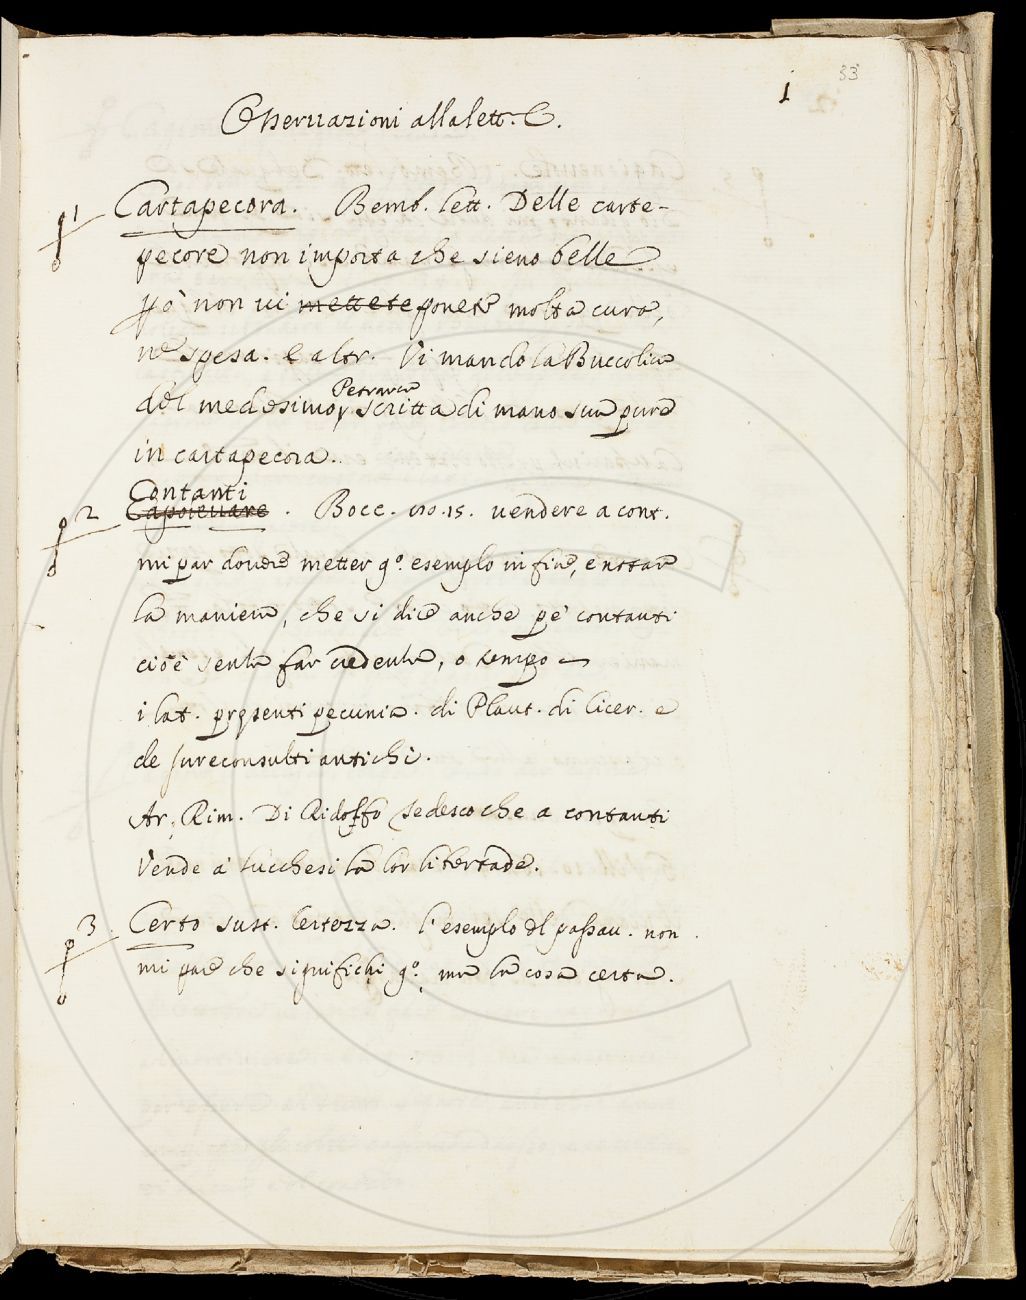 33
1
Osseruazioni alla lett. C.
1 Cartapecora. Bemb. lett. Delle carte-
pecore non importa che sieno belle
ꝑo non ui mettete ponete molta cura,
ne spesa. e altr. Vi mando la Buccolica
del medesimo Petrarca scritta di mano sua pure
in cartapecora.
Contanti
2 . Bocc. no. 15. uendere a cont.
mi par douere metter qº. esempio in fine, e notare
la maniera, che si dice anche ꝑ contanti
cioè senza far credenza, o tempo
i lat. presenti pecunia. di Plaut. di Cicer. e
de Jureconsulti antichi.
Ar. Rim. Di Ridolfo tedesco che a contanti
Vende a' Lucchesi la lor libertade.
3. Certo sust. Certezza. l'esempio dl passau. non
mi pare che significhi qº. ma la cosa certa.